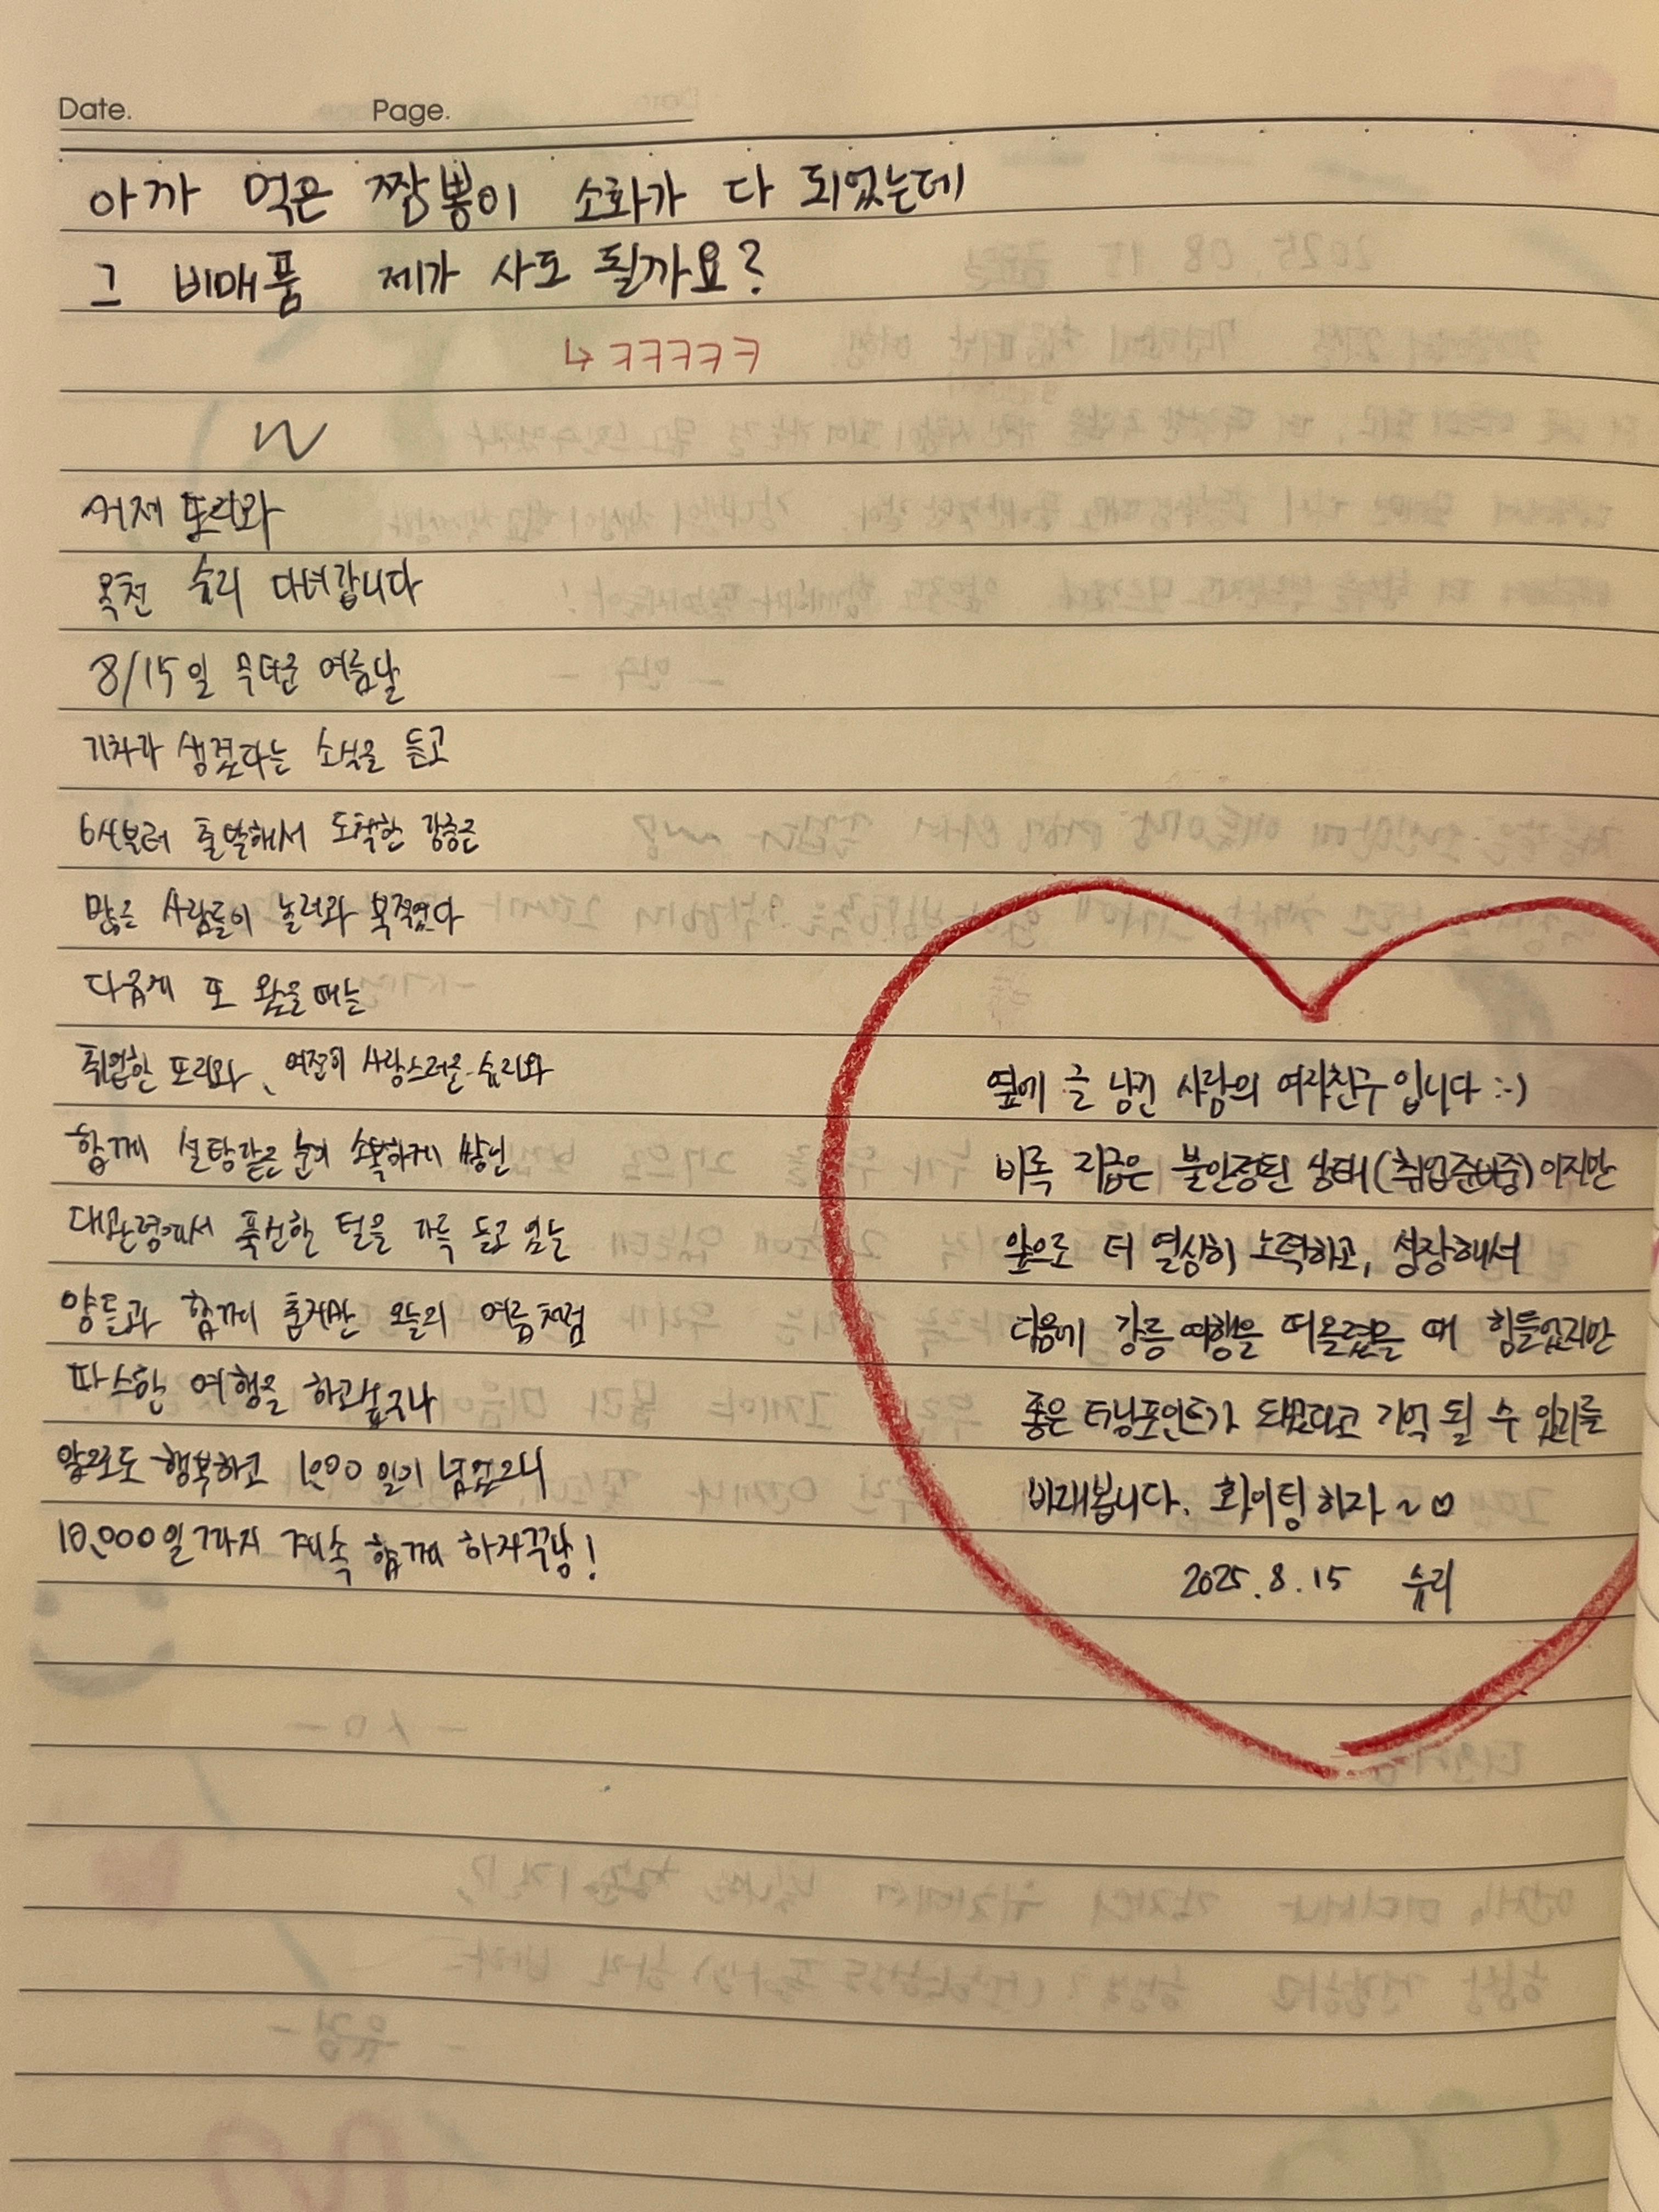 Date. Page.
아까 먹은 짬뽕이 소화가 다 되었는데
그 비매품 제가 사도 될까요?
↳ ㅋㅋㅋㅋㅋ
또리와
옥천 슈리 다녀갑니다
8/15일 무더운 여름날
기차가 생겼다는 소식을 듣고
6시부터 출발해서 도착한 강릉은
많은 사람들이 놀러와 북적였다
다음에 또 왔을 때는
취업한 또리와, 여전히 사랑스러운 슈리와
함께 설탕같은 눈이 소복하게 쌓인
대관령에서 푹신한 털을 가득 들고 있는
양들과 함께 춥지만 오늘의 여름처럼
따스한 여행을 하고싶구나
앞으로도 행복하고 1,000일이 넘었으니
10,000일까지 계속 함께 하자꾸나!
옆에 글 남긴 사람의 여자친구입니다 :-)
비록 지금은 불안정된 상태(취업준비중)이지만
앞으로 더 열심히 노력하고, 성장해서
다음에 강릉 여행을 떠올렸을 때 힘들었지만
좋은 터닝포인트가 됐었다고 기억 될 수 있기를
바래봅니다. 화이팅하자~♡
2025.8.15 슈리